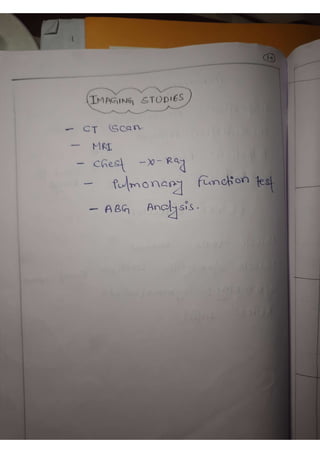 IMAGING STUDIES
- CT Scan
- MRI
- Chest -x- Ray
- Pulmonary Function test
- ABG Analysis.